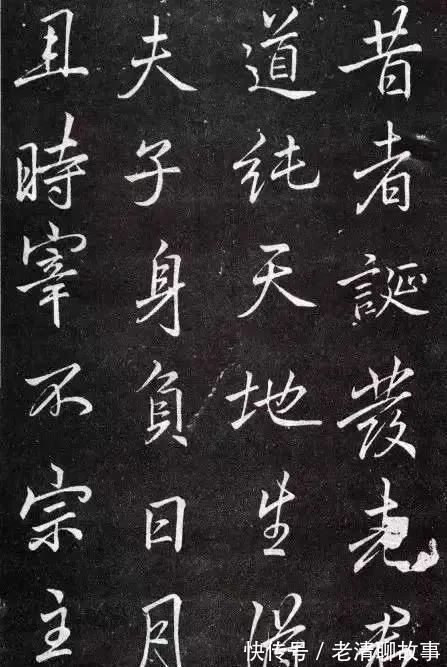 昔者誕發
道純天地生
夫子身負日月
且時宰不宗主
快传号/老清聊故事